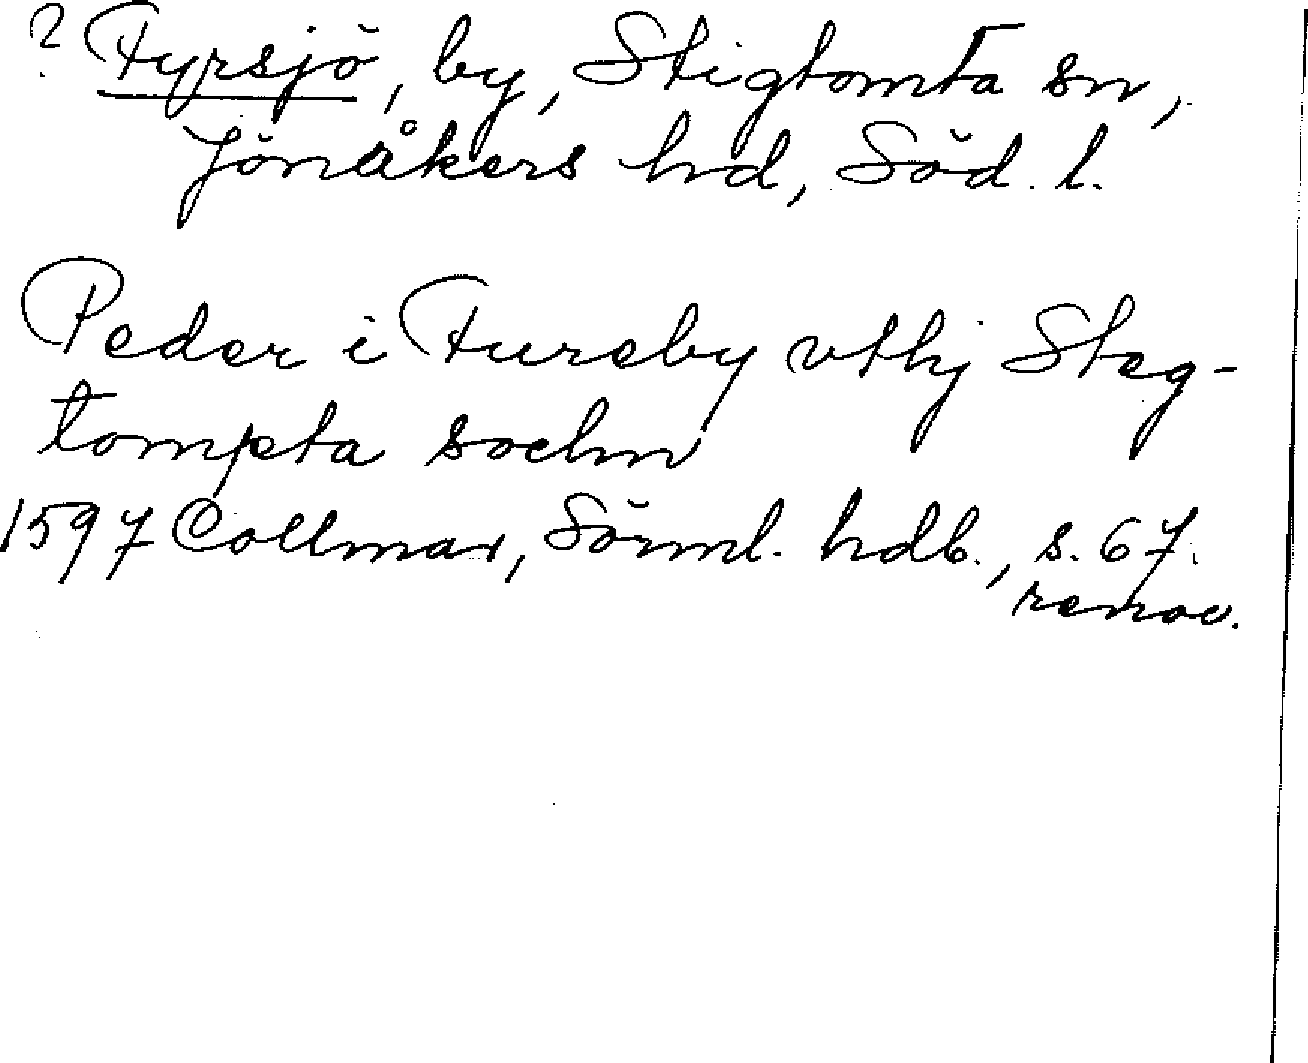 ? Fyrsjö, by, Stigtomta sn,
Jönåkers hd, Söd. l.
Peder i Fureby vthj Steg-
tompta sochn
1597 Collmar, Sörml. hdb., s. 67.
renov.